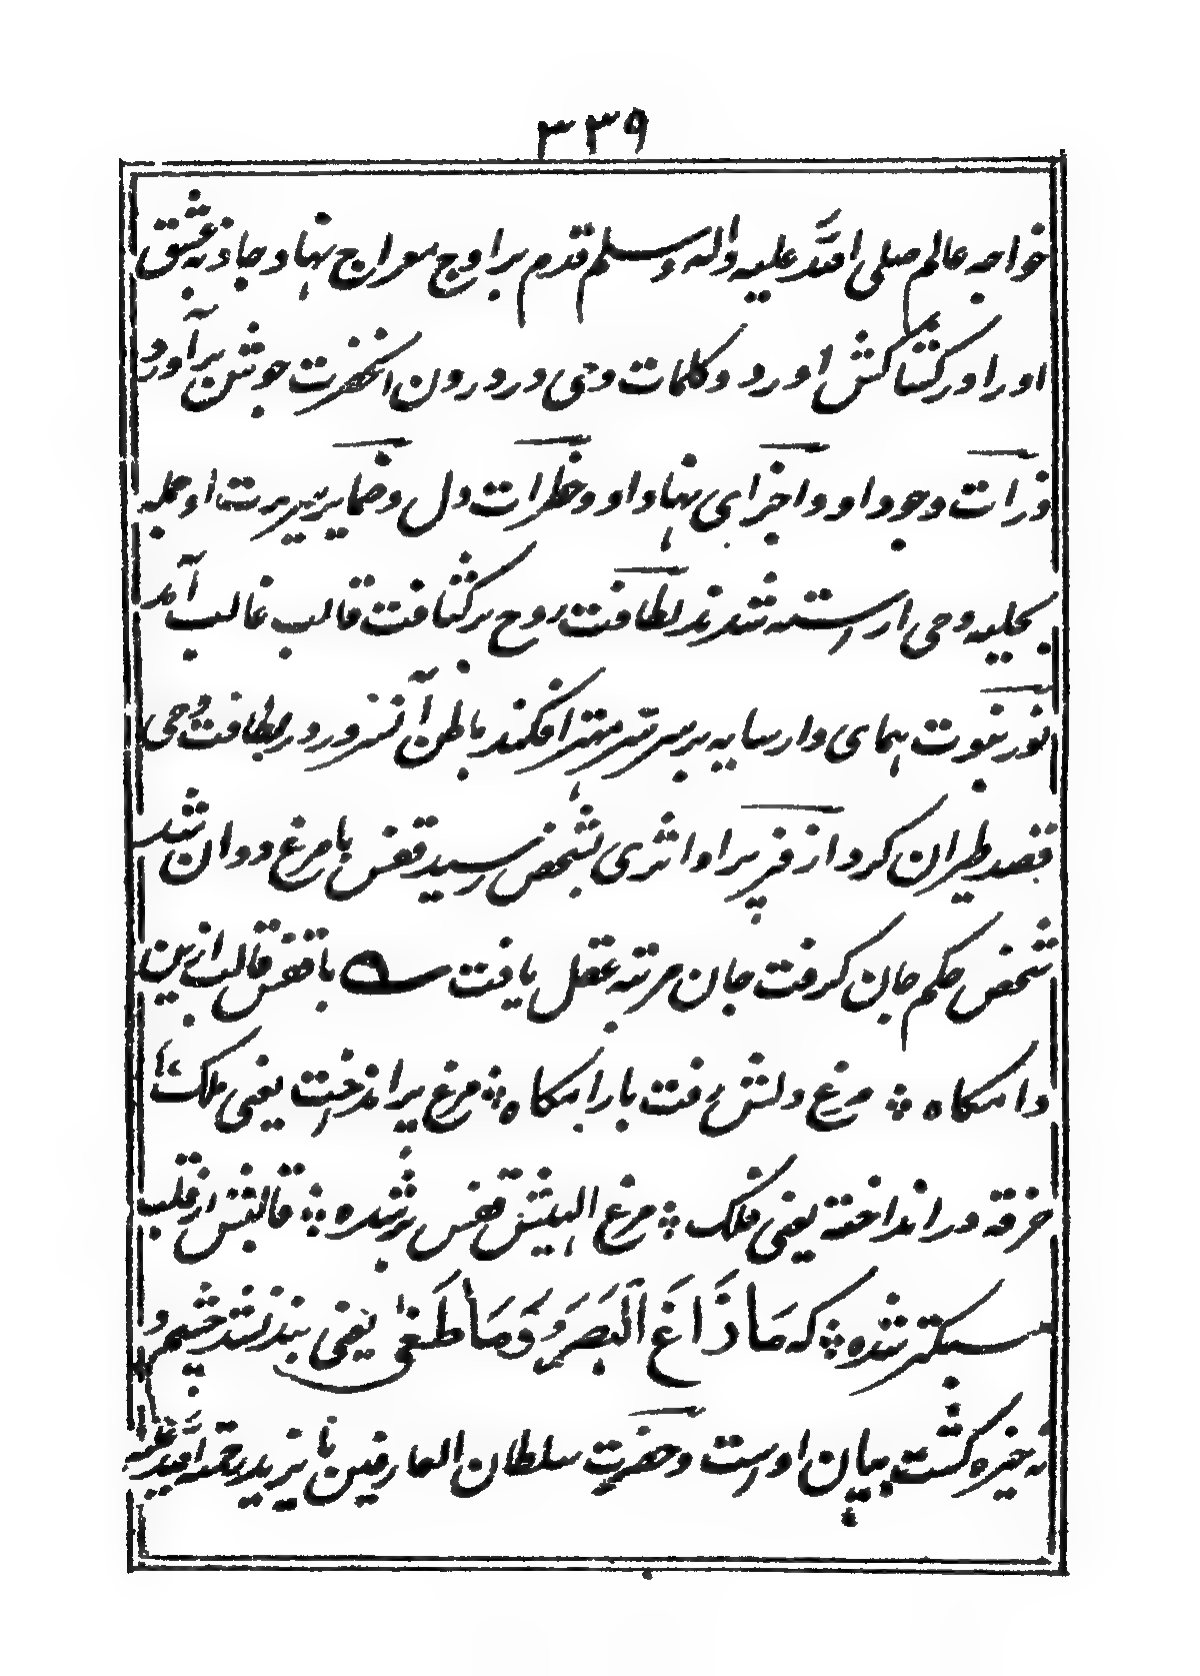 ۳۳۹
خواجه عالم صلی الله علیه واله وسلم قدم بر اوج معراج نهاد و جاذبه عشق
او را در کشاکش اورد و کلمات وحی در درون انحضرت جوش برآورد
ذرات وجود او و اجزای نهاد او و خطرات دل و ضمایر سریرت او جمله
بحلیه وحی اراسته شدند لطافت روح بر کثافت قالب غالب آمد
نور نبوت همای وار سایه بر سر مهتر افکند باطن آنسرور در لطافت وحی
قصد طیران کرد از فر پر او اثری بشخص رسید قفس با مرغ دوان شد
شخص حکم جان کرفت جان مرتبه عقل یافت با قفس قالب ازین
دامکاه ؞ مرغ دلش رفت بارامکاه ؞ مرغ پر انداخت یعنی ملک
خرقه در انداخته یعنی فلک ؞ مرغ الهیش قفس پر شده ؞ قالبش از قلب
سبکتر شده ؞ که مَا زَاغَ الْبَصَرُ وَمَا طَغٰی یعنی بند نشد چشم و
نه خیره کشت بیان اوست و حضرت سلطان العارفین بایزید رحمة الله علیه